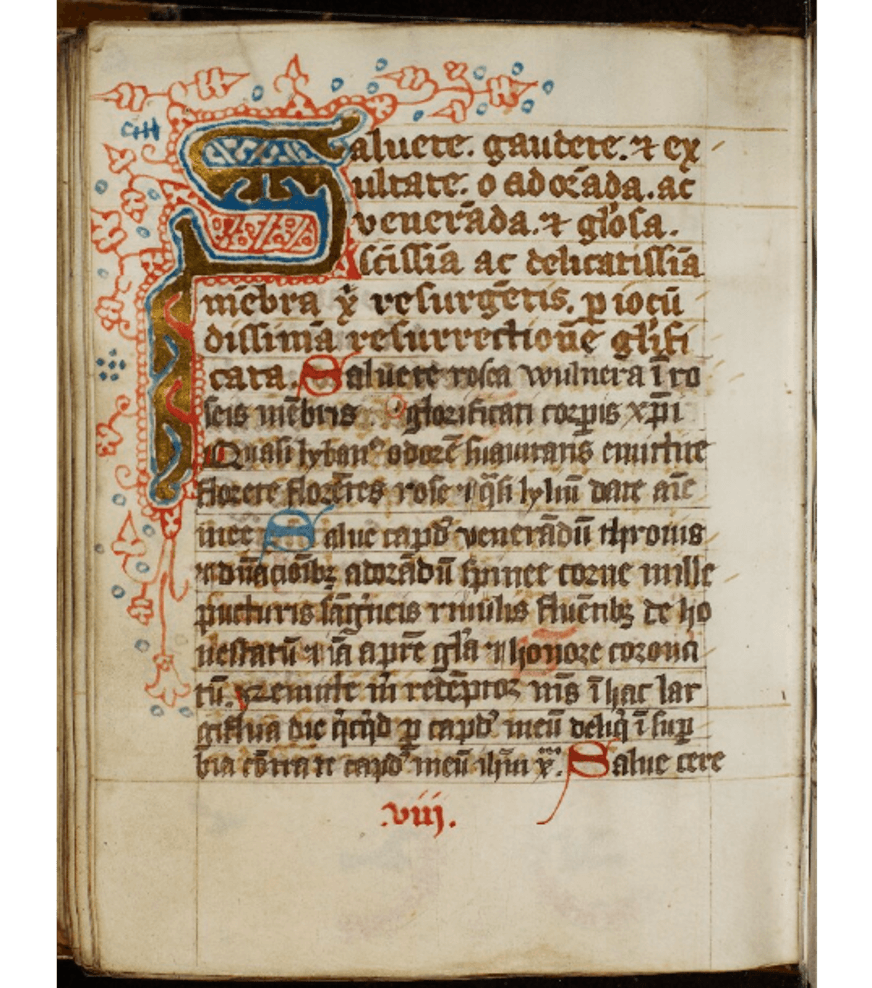 Saluete. gaudete. ⁊ ex
ultate. o adorāda. ac
venerāda. ⁊ gl'osa.
scīssīa ac delicatissīa
mēbra x̄p̄i resurgētis. p iocū
dissimā resurrectionē glīfi
cata. Saluete rosea wulnera ī ro
seis mēbris glorificati corpis xp̄i
Quasi lyban⁹ odorē suauitatis emittite
florete florētes rose ⁊ q̄si lyliū date
mee Salue capd' venerādū thronis
⁊ dn̄acionibȝ adorādū spinee corone mille
pūcturis sāgūeis riuulis fluētibȝ de ho
nestatū ⁊ iā a p̄re gl'a ⁊ honore corona
tū. remitte m̄ redēptor ī hac lar
giflua die q̄cq̄d p capd' meū deliq̄ ī sup
bia cōtra te capd' meū ih̄u x̄p̄e. Salue cere
.viij.